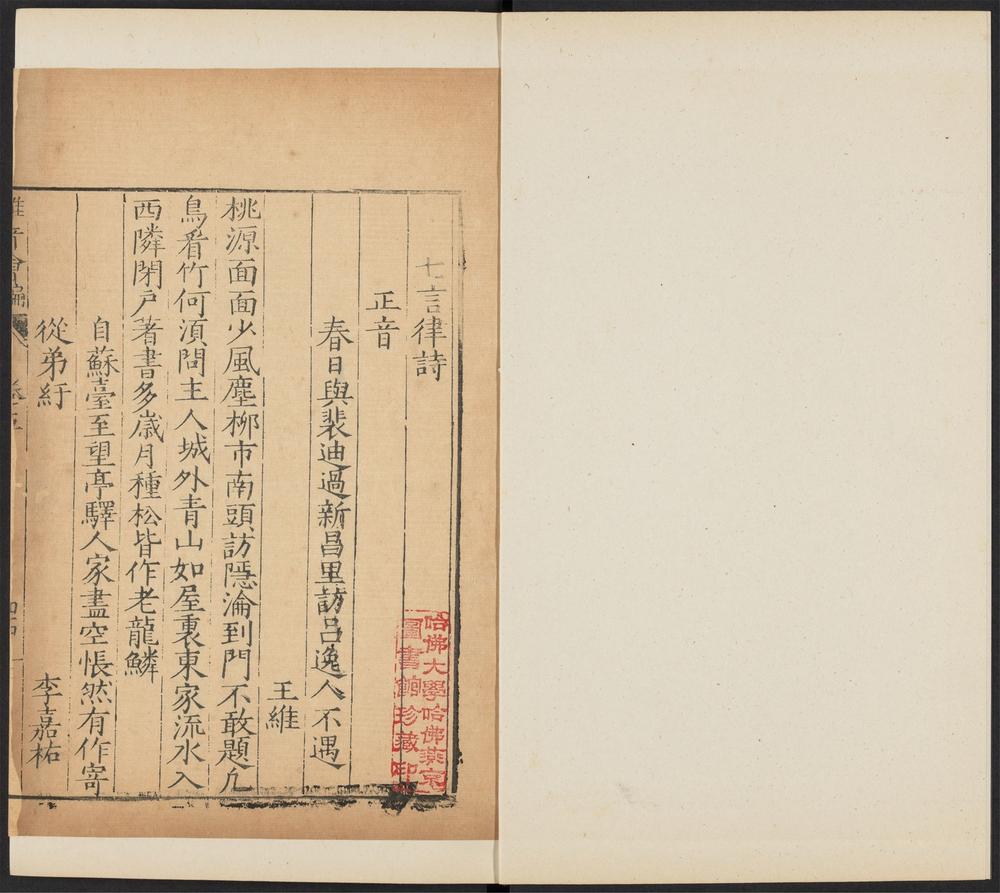 七言律詩
正音
春日與裴迪過新昌里訪呂逸人不遇
王維
桃源面面少風塵柳市南頭訪隱淪到門不敢題凢
鳥看竹何須問主人城外青山如屋裏東家流水入
西隣閉戸著書多歳月種松皆作老龍鱗
自蘇臺至望亭驛人家盡空悵然有作寄
從弟紆
李嘉祐
哈佛大學哈佛燕京
圖書館珍藏印